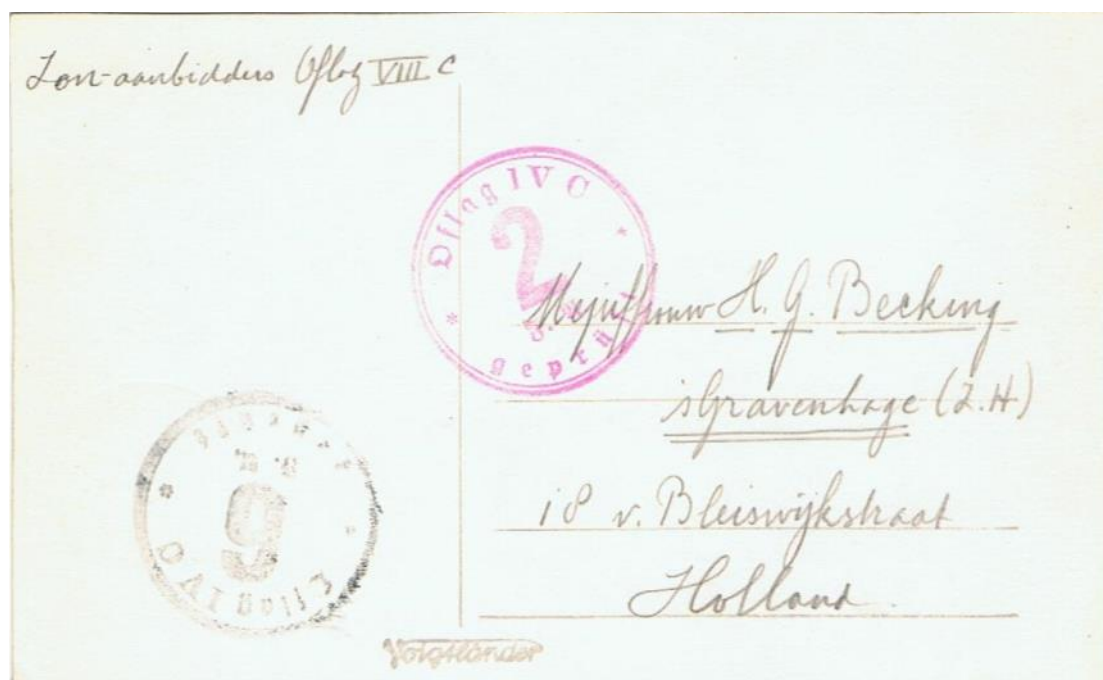 Zon-aanbidders Oflag VIII C
Oflag IV C
2
geprüft
Mejuffrouw H. G. Becking
sGravenhage (Z.H)
18 v. Bleiswijkstraat
Holland.
9
Oflag IV C
Voigtländer